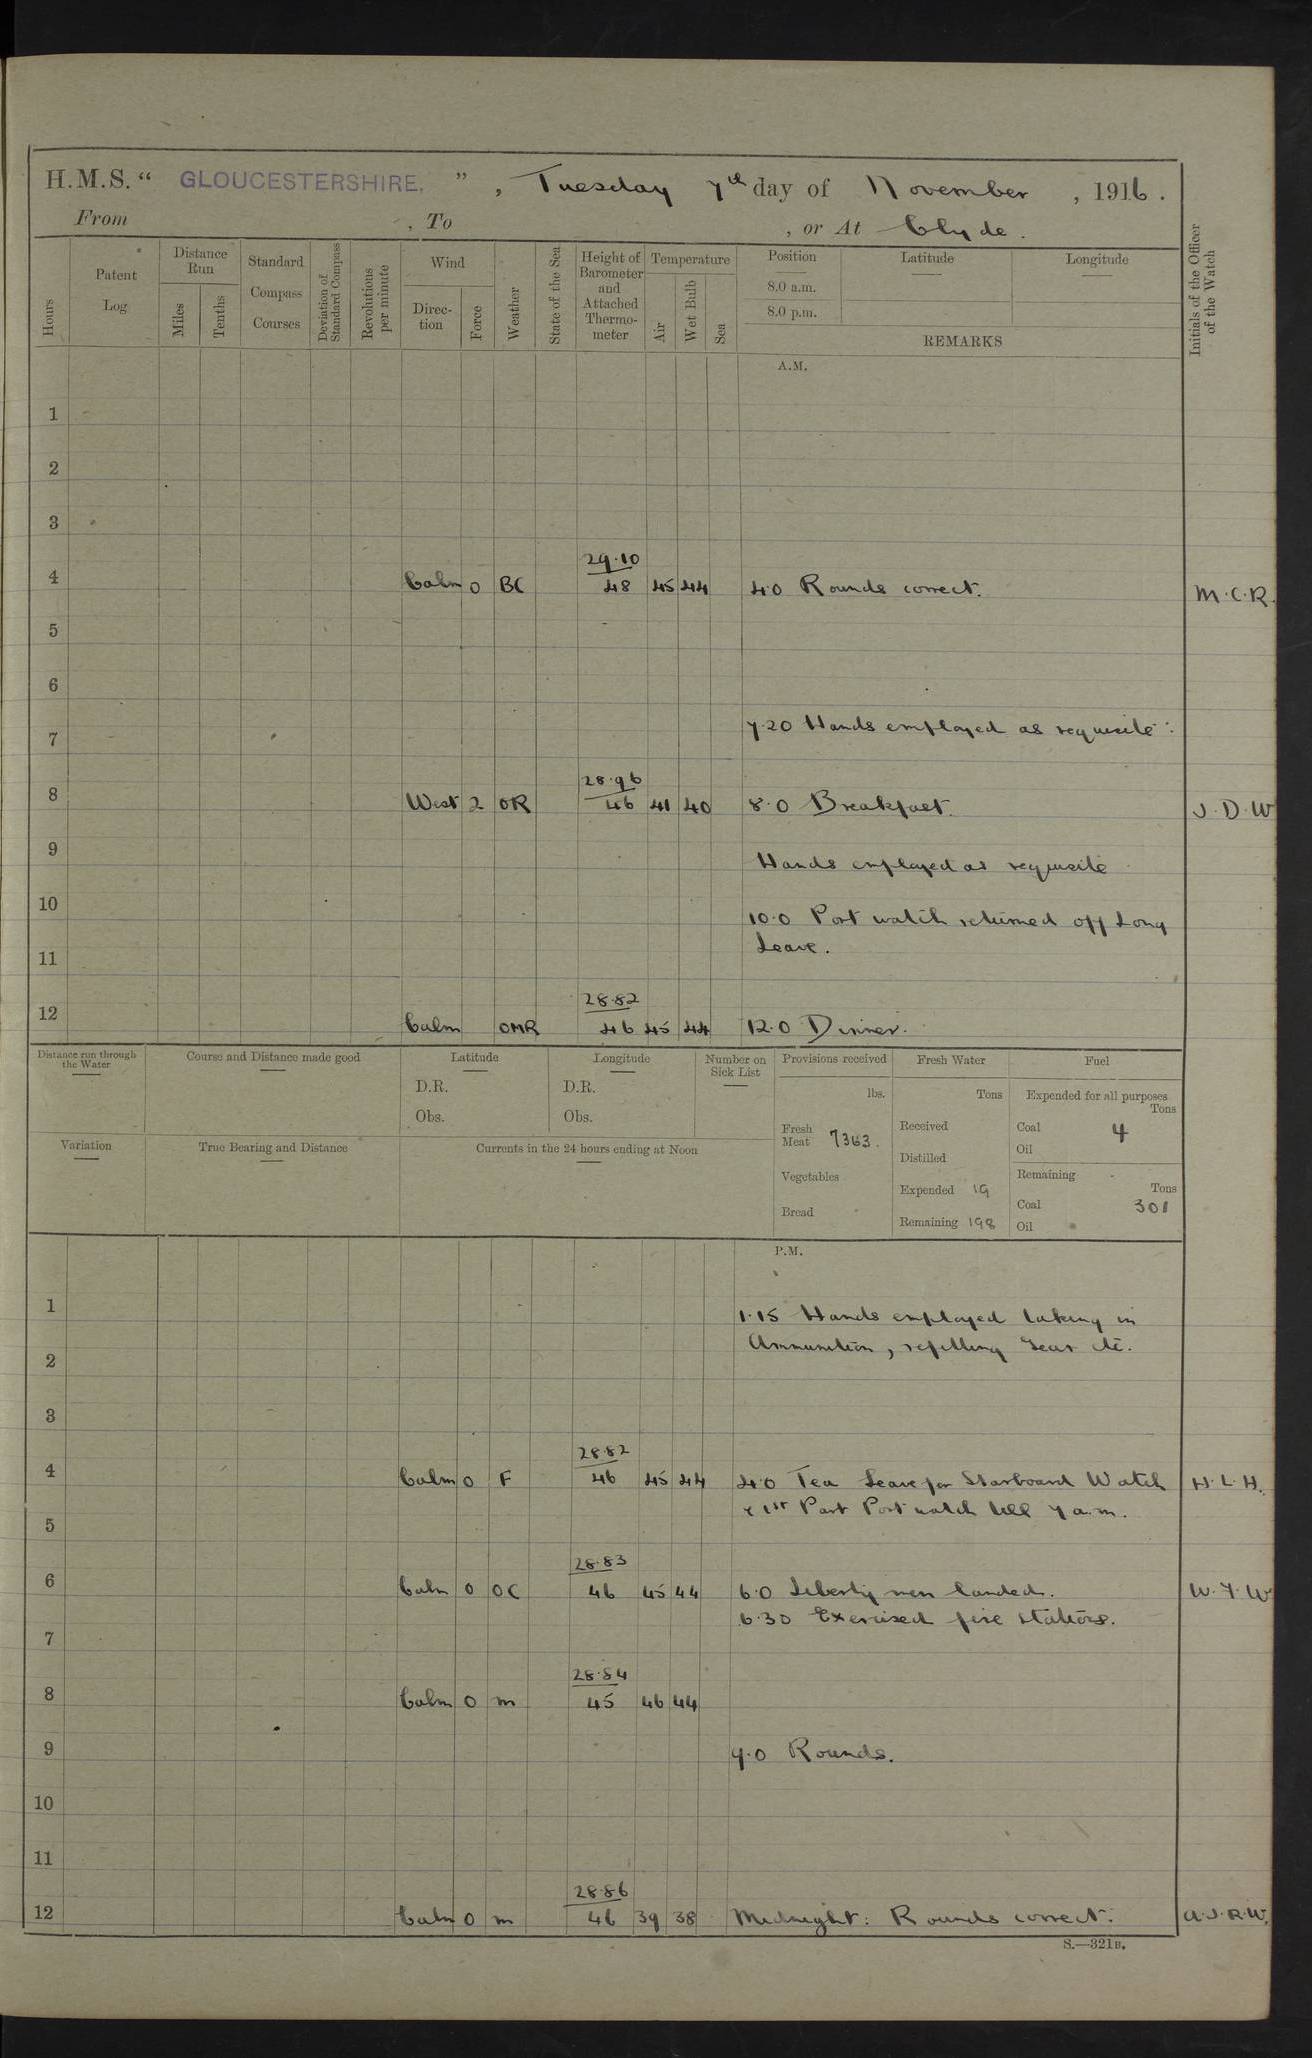 H.M.S. “ GLOUCESTERSHIRE, ” , Tuesday 7th day of November , 1916 .
From , To , or At Clyde .
Hours
Patent Log
Distance Run
Miles
Tenths
Standard Compass Courses
Deviation of Standard Compass
Revolutions per minute
Wind
Direc- tion
Force
Weather
State of the Sea
Height of Barometer and Attached Thermo- meter
Temperature
Air
Wet Bulb
Sea
Position Latitude Longitude
8.0 a.m.
8.0 p.m.
REMARKS
Initials of the Officer of the Watch
A.M.
1
2
3
29.10
4 Calm 0 BC 48 45 44 4.0 Rounds correct. M.C.R.
5
6
7.20 Hands employed as requisite
7
28.96
8 West 2 OR 46 41 40 8.0 Breakfast. J.D.W
9 Hands employed as requisite
10 10.0 Port watch returned off Long
11 Leave.
28.82
12 Calm OMR 46 45 44 12.0 Dinner.
Distance run through the Water
Course and Distance made good
Latitude
D.R.
Obs.
Longitude
D.R.
Obs.
Number on Sick List
Provisions received
lbs.
Fresh Meat 7363.
Vegetables
Bread
Fresh Water
Tons
Received
Distilled
Expended 19
Remaining 198
Fuel
Expended for all purposes
Tons
Coal 4
Oil
Remaining
Tons
Coal 301
Oil
Variation
True Bearing and Distance
Currents in the 24 hours ending at Noon
P.M.
1 1.15 Hands employed taking in
2 Ammunition, refitting Gear etc.
3
28.82
4 Calm 0 F 46 45 44 4.0 Tea Leave for Starboard Watch H.L.H.
& 1st Part Port watch till 7 a.m.
5
28.83
6 Calm 0 OC 46 45 44 6.0 Liberty men landed. W.Y.W
6.30 Exercised fire stations.
7
28.84
8 Calm 0 m 45 46 44
9 9.0 Rounds.
10
11
28.86
12 Calm 0 m 46 39 38 Midnight: Rounds correct. A.J.R.W.
S.—321B.